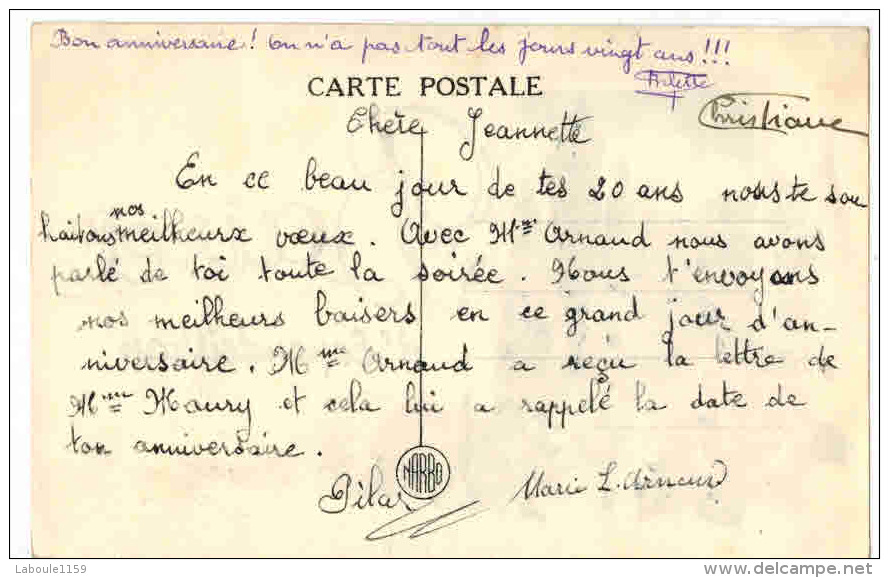 Bon anniversaire! On n'a pas tout les jours vingt ans!!!
CARTE POSTALE
Christiane
Chère Jeannette
En ce beau jour de tes 20 ans nous te sou
haitons nos meilheurx vœux. Avec Mme Arnaud nous avons
parlé de toi toute la soirée. Nous t'envoyons
nos meilheurs baisers en ce grand jour d'an-
niversaire. Mme Arnaud a reçu la lettre de
Mme Maury et cela lui a rappelé la date de
ton anniversaire.
NARBO
Pilar
Marie L. Arnaud
Laboule1159
delcampe.net